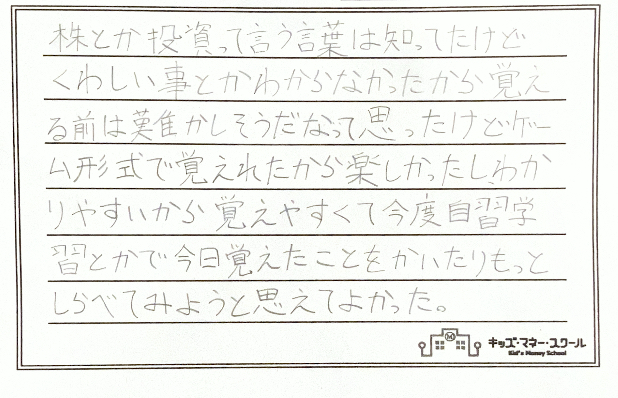 株とか投資って言う言葉は知ってたけど
くわしい事とかわからなかったから覚え
る前は難かしそうだなって思ったけどゲー
ム形式で覚えれたから楽しかったし、わか
りやすいから覚えやすくて今度自習学
習とかで今日覚えたことをかいたりもっと
しらべてみようと思えてよかった。
キッズ・マネー・スクール
Kid's Money School